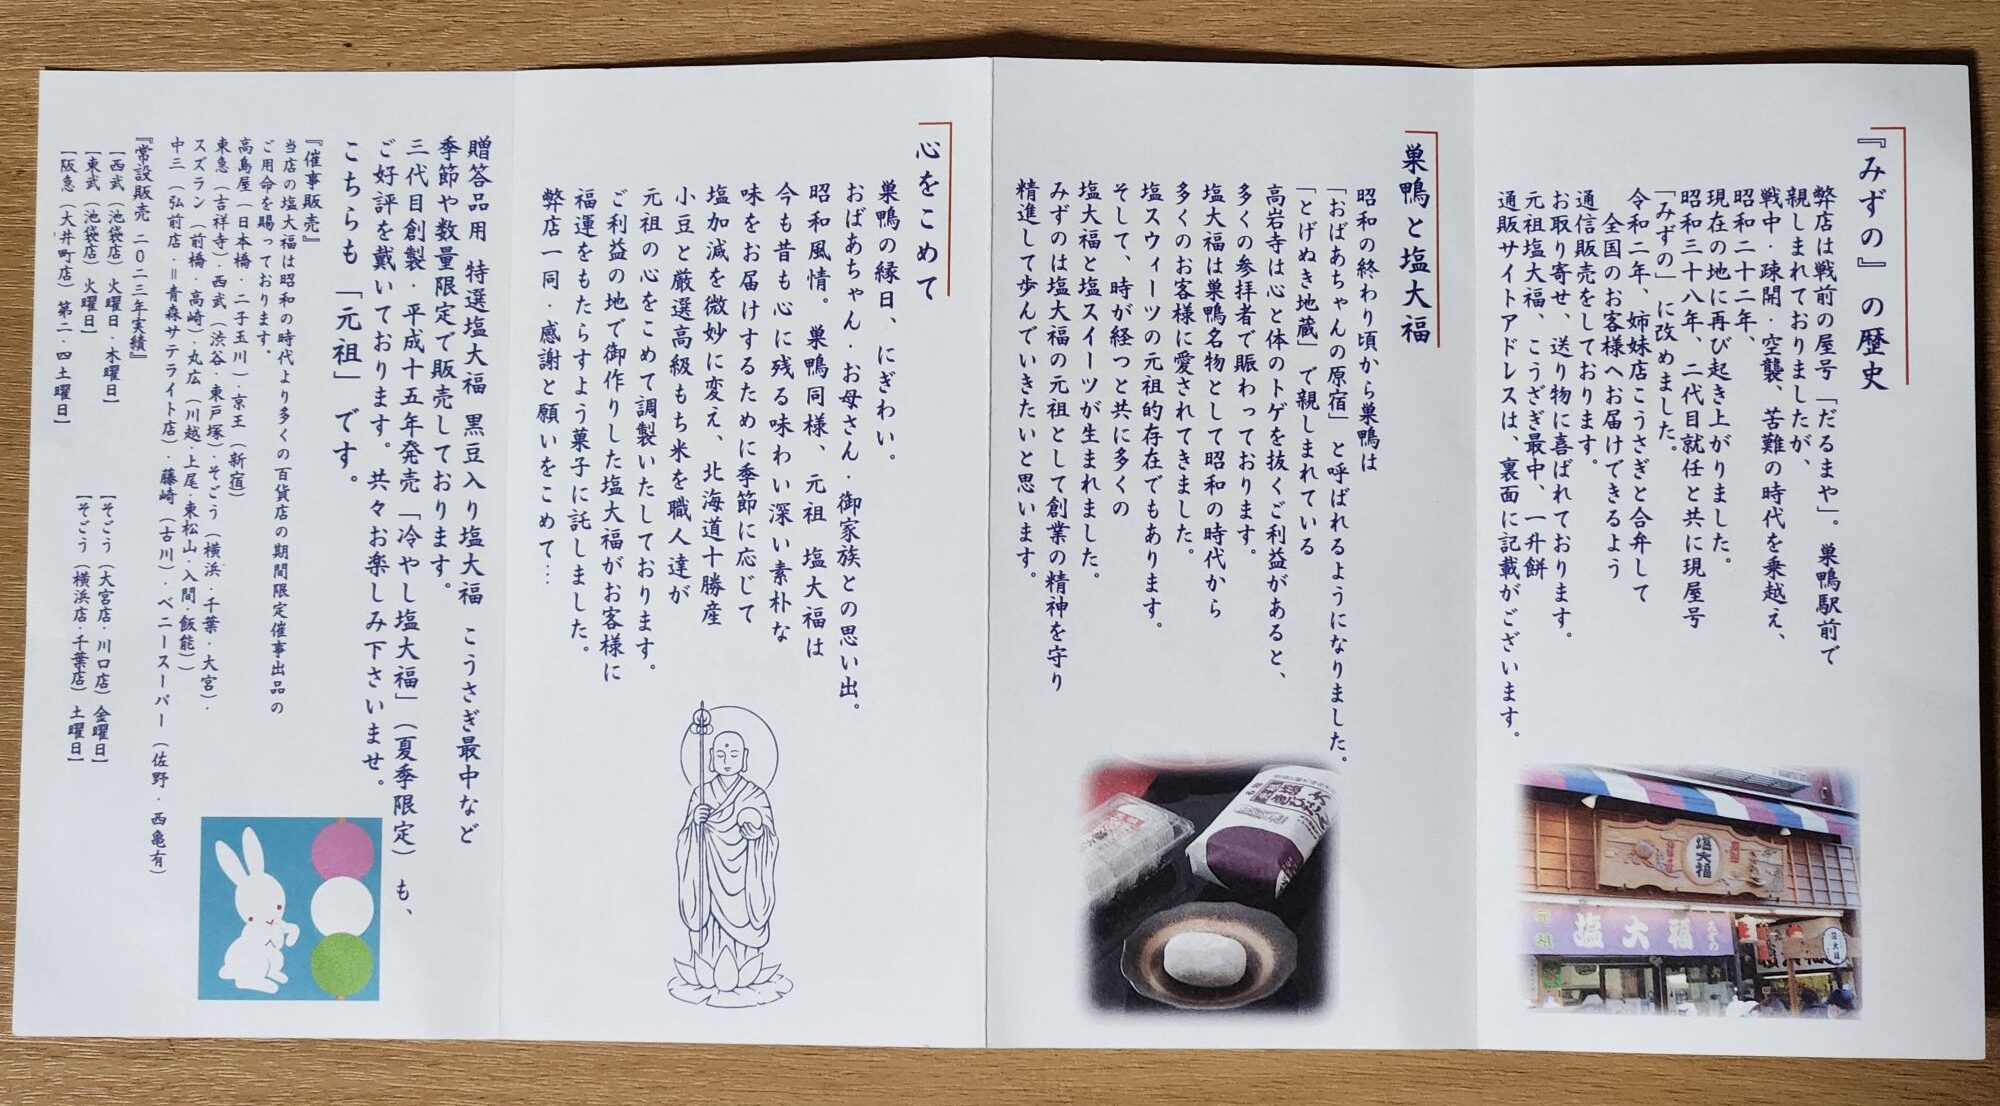 『みずの』の歴史
弊店は戦前の屋号「だるまや」。巣鴨駅前で
親しまれておりましたが、
戦中・疎開・空襲、苦難の時代を乗越え、
昭和二十二年、
現在の地に再び起き上がりました。
昭和三十八年、二代目就任と共に現屋号
「みずの」に改めました。
令和二年、姉妹店こうさぎと合弁して
全国のお客様へお届けできるよう
通信販売をしております。
お取り寄せ、送り物に喜ばれております。
元祖塩大福、こうさぎ最中、一升餅
通販サイトアドレスは、裏面に記載がございます。
塩大福
元祖
塩大福
みずの
塩大福
巣鴨と塩大福
昭和の終わり頃から巣鴨は
「おばあちゃんの原宿」と呼ばれるようになりました。
「とげぬき地蔵」で親しまれている
高岩寺は心と体のトゲを抜くご利益があると、
多くの参拝者で賑わっております。
塩大福は巣鴨名物として昭和の時代から
多くのお客様に愛されてきました。
塩スウィーツの元祖的存在でもあります。
そして、時が経つと共に多くの
塩大福と塩スイーツが生まれました。
みずのは塩大福の元祖として創業の精神を守り
精進して歩んでいきたいと思います。
心をこめて
巣鴨の縁日、にぎわい。
おばあちゃん・お母さん・御家族との思い出。
昭和風情。巣鴨同様、元祖 塩大福は
今も昔も心に残る味わい深い素朴な
味をお届けするために季節に応じて
塩加減を微妙に変え、北海道十勝産
小豆と厳選高級もち米を職人達が
元祖の心をこめて調製いたしております。
ご利益の地で御作りした塩大福がお客様に
福運をもたらすよう菓子に託しました。
弊店一同・感謝と願いをこめて…
贈答品用 特選塩大福 黒豆入り塩大福 こうさぎ最中など
季節や数量限定で販売しております。
三代目創製・平成十五年発売「冷やし塩大福」(夏季限定) も、
ご好評を戴いております。共々お楽しみ下さいませ。
こちらも「元祖」です。
『催事販売』
当店の塩大福は昭和の時代より多くの百貨店の期間限定催事出品の
ご用命を賜っております。
高島屋(日本橋・二子玉川)・京王(新宿)
東急(吉祥寺)・西武(渋谷・東戸塚)・そごう(横浜・千葉・大宮)・
スズラン(前橋・高崎)・丸広(川越・上尾・東松山・入間・飯能))
中三(弘前店・=青森サテライト店)・藤崎(古川)・ベニースーパー(佐野・西亀有)
『常設販売 二〇二三年実績』
【西武(池袋店)火曜日・木曜日】
【そごう(大宮店・川口店)金曜日】
【東武(池袋店)火曜日】
【そごう(横浜店・千葉店)土曜日】
【阪急(大井町店)第二・四土曜日】